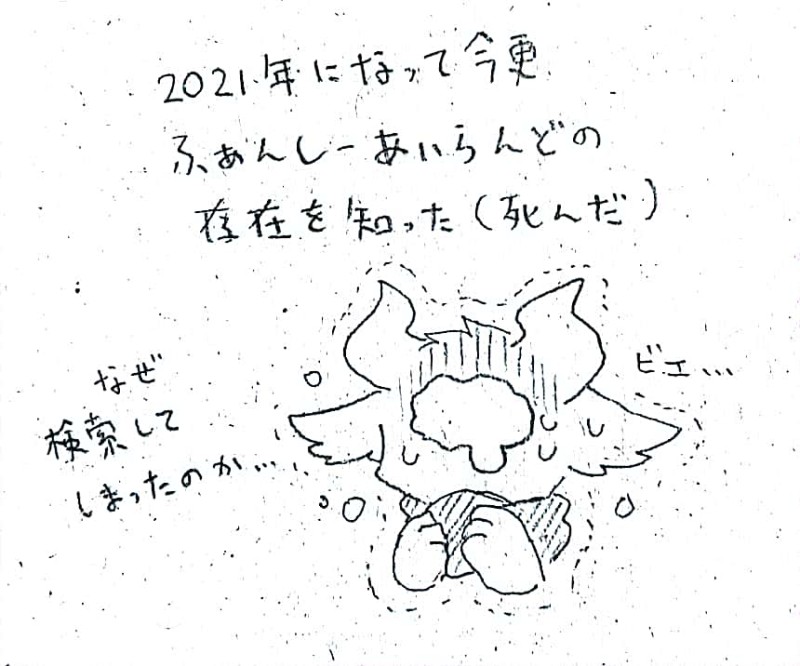 2021年になって今更
ふぁんしーあいらんどの
存在を知った(死んだ)
ビェ...
なぜ
検索して
しまったのか...